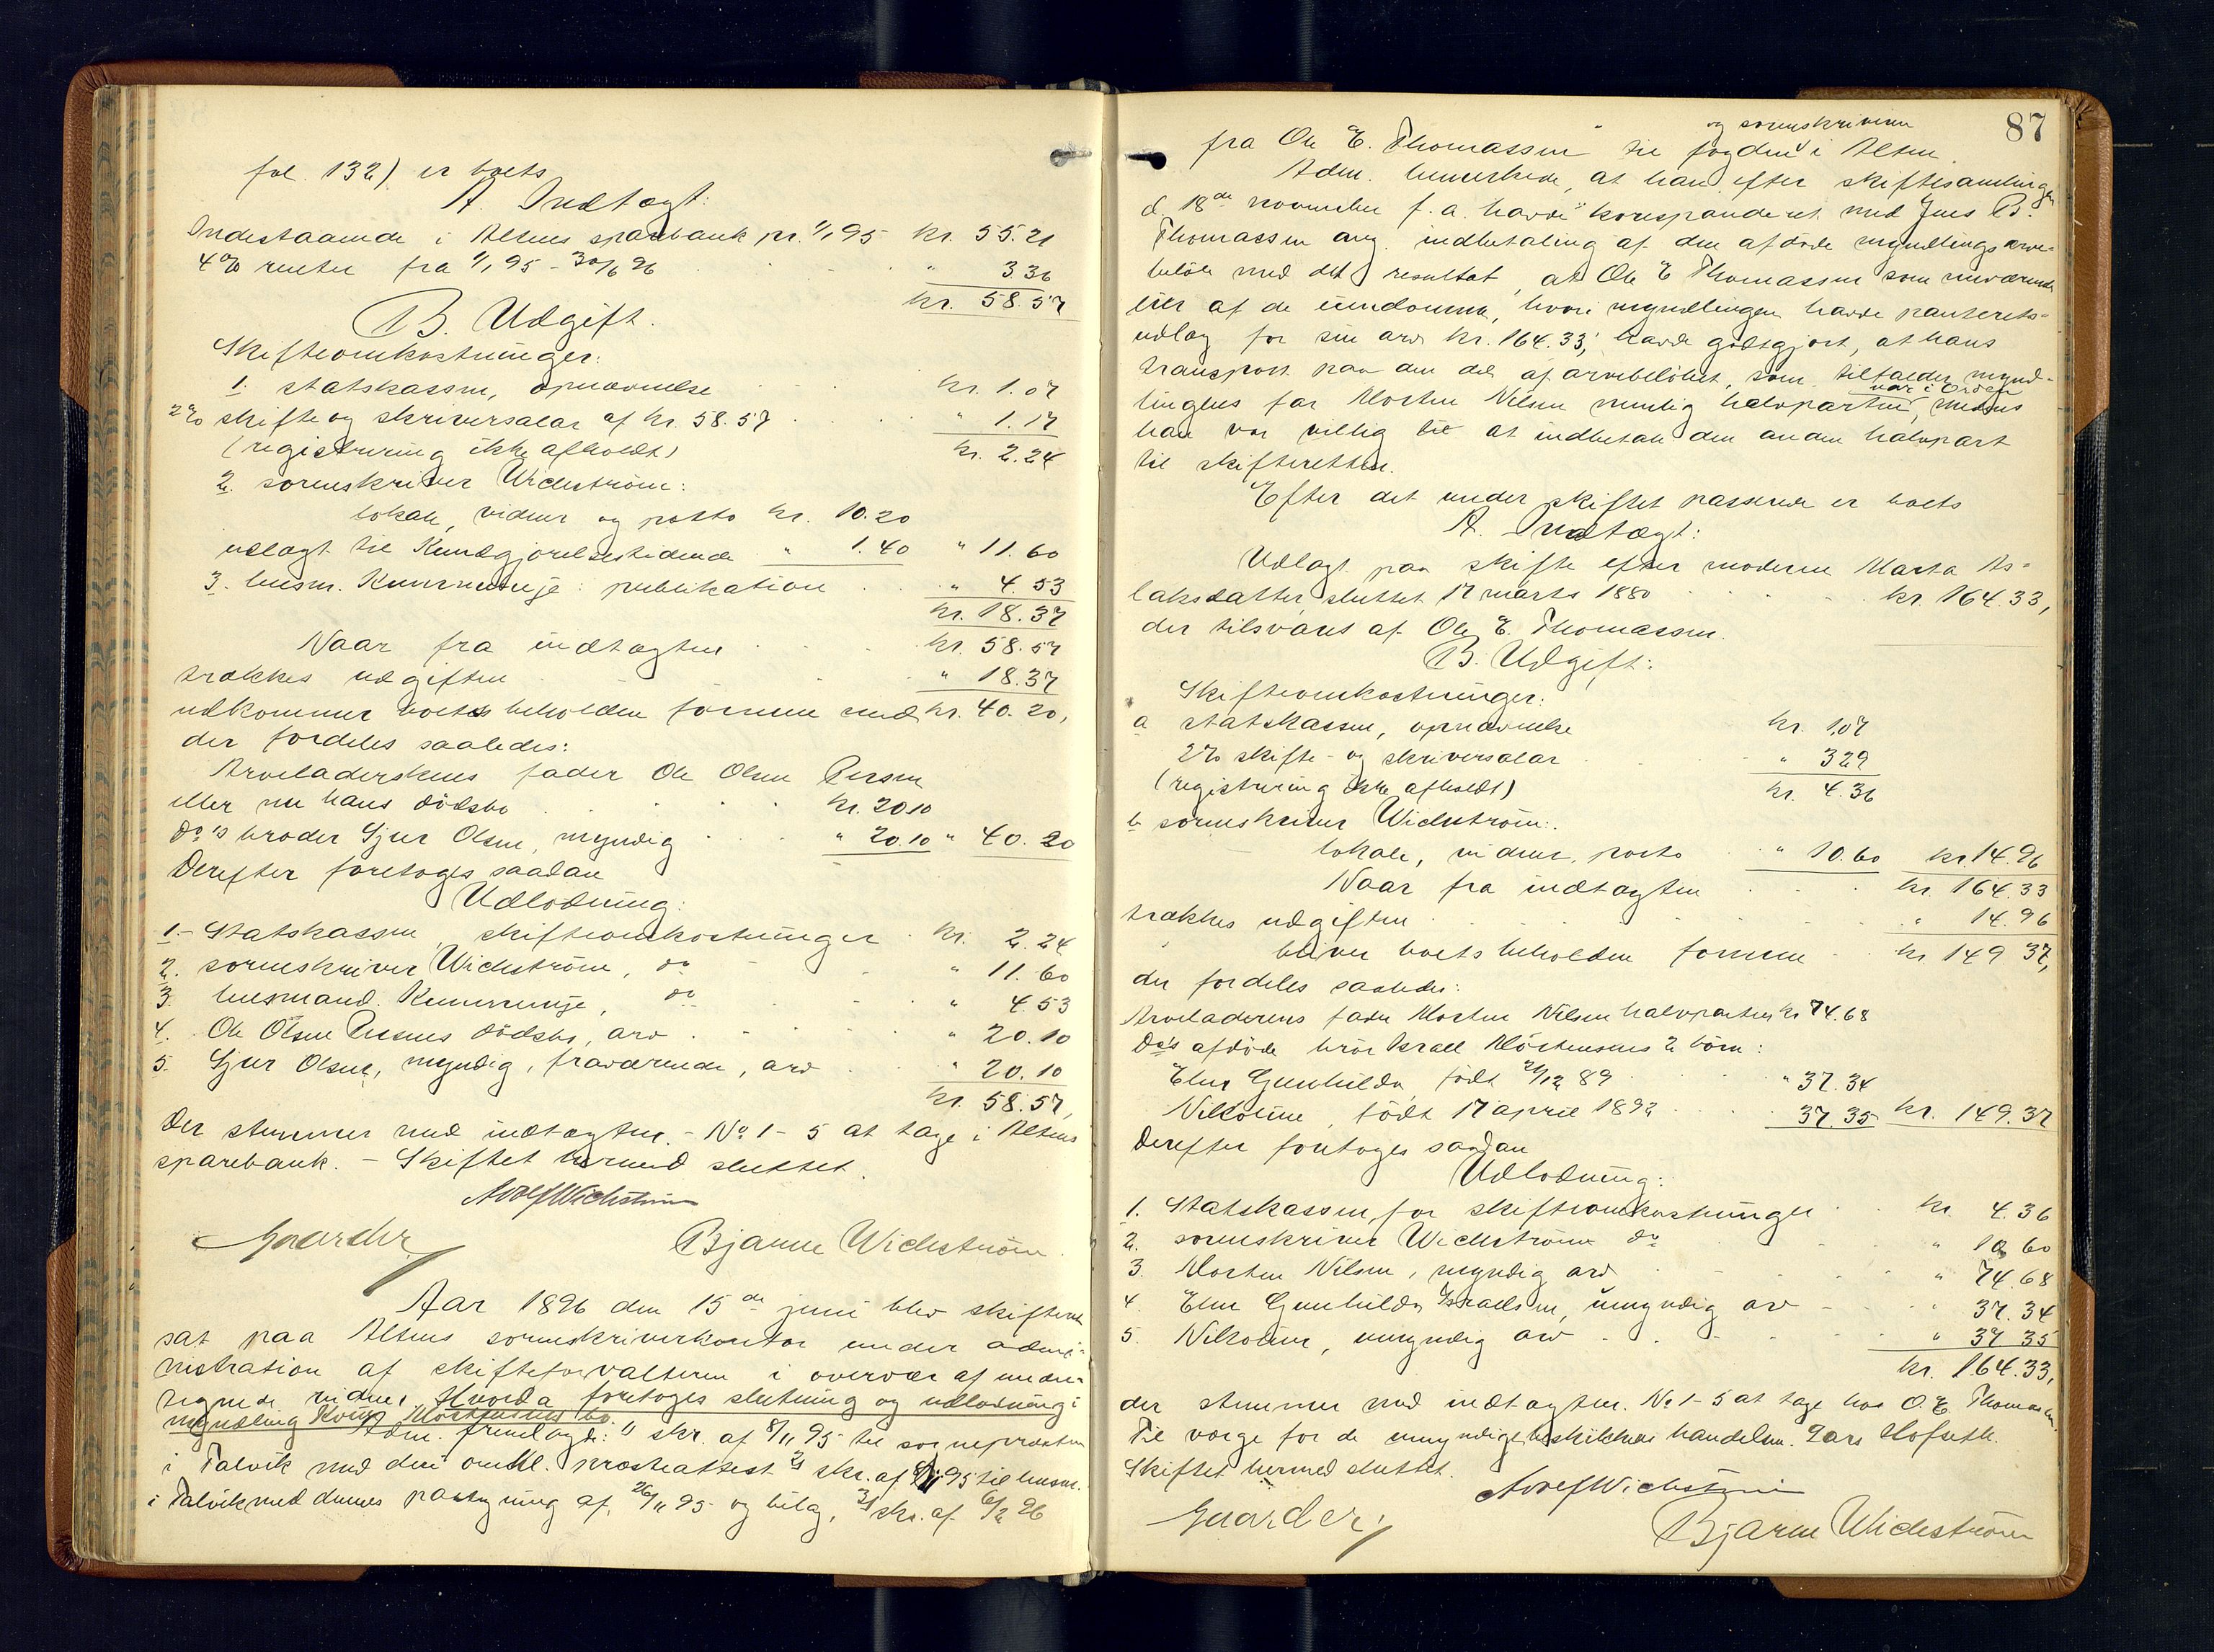 fol. 132) er boets
A. Indtægt:
Indestaaende i Altens sparebank pr. 1/1 95 kr. 55.21
4% renter fra 1/1 95 - 30/6 96 " 3 36
kr. 58.57
B. Udgift.
Skifteomkostninger:
1. statskassen, opnævnelse kr. 1.07
2% skifte og skriversalar af kr. 58.57 " 1.17
(registrering ikke afholdt) kr. 2.24
2. sorenskriver Wichstrøm:
lokale, vidner og porto kr. 10.20
udlagt til Kundgjørelsestidende " 1.40 " 11.60
3. lensm. Kummeneje: publikation " 4.53
kr. 18.37
Naar fra indtægten kr. 58.57
trækkes udgiften " 18.37
udkommer boets beholdne formue med kr. 40.20,
der fordeles saaledes:
Arveladerskens fader Ole Olsen
eller nu hans dødsbo kr. 20.10
do's broder Sjur Olsen, myndig " 20.10 " 40.20
Derefter foretoges saadan
Udlodning:
1. Statskassen, skifteomkostninger kr. 2.24
2. sorenskriver Wichstrøm, do " 11.60
3. lensmand Kummeneje, do " 4.53
4. Ole Olsen dødsbo, arv " 20.10
5. Sjur Olsen, myndig, fraværende, arv " 20.10
kr. 58.57,
der stemmer med indtægten. - No 1-5 at tage i Altens
sparebank. - Skiftet hermed sluttet.
Adolf Wichstrøm
Gaarder Bjarne Wichstrøm.
Aar 1896 den 15de juni blev skifteret
sat paa Altens sorenskriverkontor under admi-
nistration af skifteforvalteren i overvær af under-
tegnede vidner. Hvorda foretoges slutning og udlodning i
myndling Mortensens bo.
Adm. fremlagde: 1) skr. af 8/11 95 til sognepræsten
i Talvik med den omhl. presteattest 2) skr. af 8/11 95 til lensm.
i Talvik med dennes paategning af 26/11 95 og bilag, 3) skr. af 6/2 96
87
og sorenskriveren
fra Ole E. Thomassen til fogden i Alten.
Adm. bemerkede, at han efter skiftesamlingen
d. 18de november f. a. havde korresponderet med Jens B.
Thomassen ang. indbetaling af den afdøde myndlings arve-
beløb med det resultat, at Ole E Thomassen som nuværende
eier af de eiendomme, hvori myndlingen havde panterets-
udlæg for sin arv kr. 164.33, havde godtgjort, at hans
transport paa den del af arvebeløbet, som tilfalder mynd-
var i orden
lingens far Morten Nilsen nemlig halvparten, medens
han var villig til at indbetale den anden halvpart
til skifteretten.
Efter det under skiftet passerede er boets
A. Indtægt:
Udlagt paa skifte efter moderen Marta As-
laksdatter, sluttet 17 marts 1880 kr. 164.33,
der tilsvares af Ole E. Thomassen.
B. Udgift:
Skifteomkostninger:
a statskassen, opnævnelse kr. 1,07
2% skifte- og skriversalar " 3 29
(registrering ikke afholdt) kr. 4.36
b sorenskriver Wichstrøm:
lokale, vidner, porto " 10.60 kr 14.96
Naar fra indtægten kr. 164.33
trækkes udgiften " 14.96
bliver boets beholdne formue kr 149 37,
der fordeles saaledes:
Arveladerens fader Morten Nilsen halvparten kr 74.68
Do's afdøde bror Israel Mortensens 2 børn:
Elen Gunhilda, født 21/12 89 " 37.34
Nikoline, født 17 april 1892 37.35 kr. 149.37
Derefter foretoges saadan
Udlodning:
1. Statskassen, for skifteomkostninger kr. 4.36
2. sorenskriver Wichstrøm do " 10 60
3. Morten Nilsen, myndig arv " 74.68
4. Elen Gunhilda Israelsen, umyndig arv " 37.34
5. Nikoline, umyndig arv " 37 35
kr. 164.33,
der stemmer med indtægten. No 1-5 at tage hos O. E. Thomassen.
Til værge for de umyndige beskikkes handelsm. Lars Hofseth.
Skiftet hermed sluttet.
Adolf Wichstrøm
Gaarder Bjarne Wichstrøm